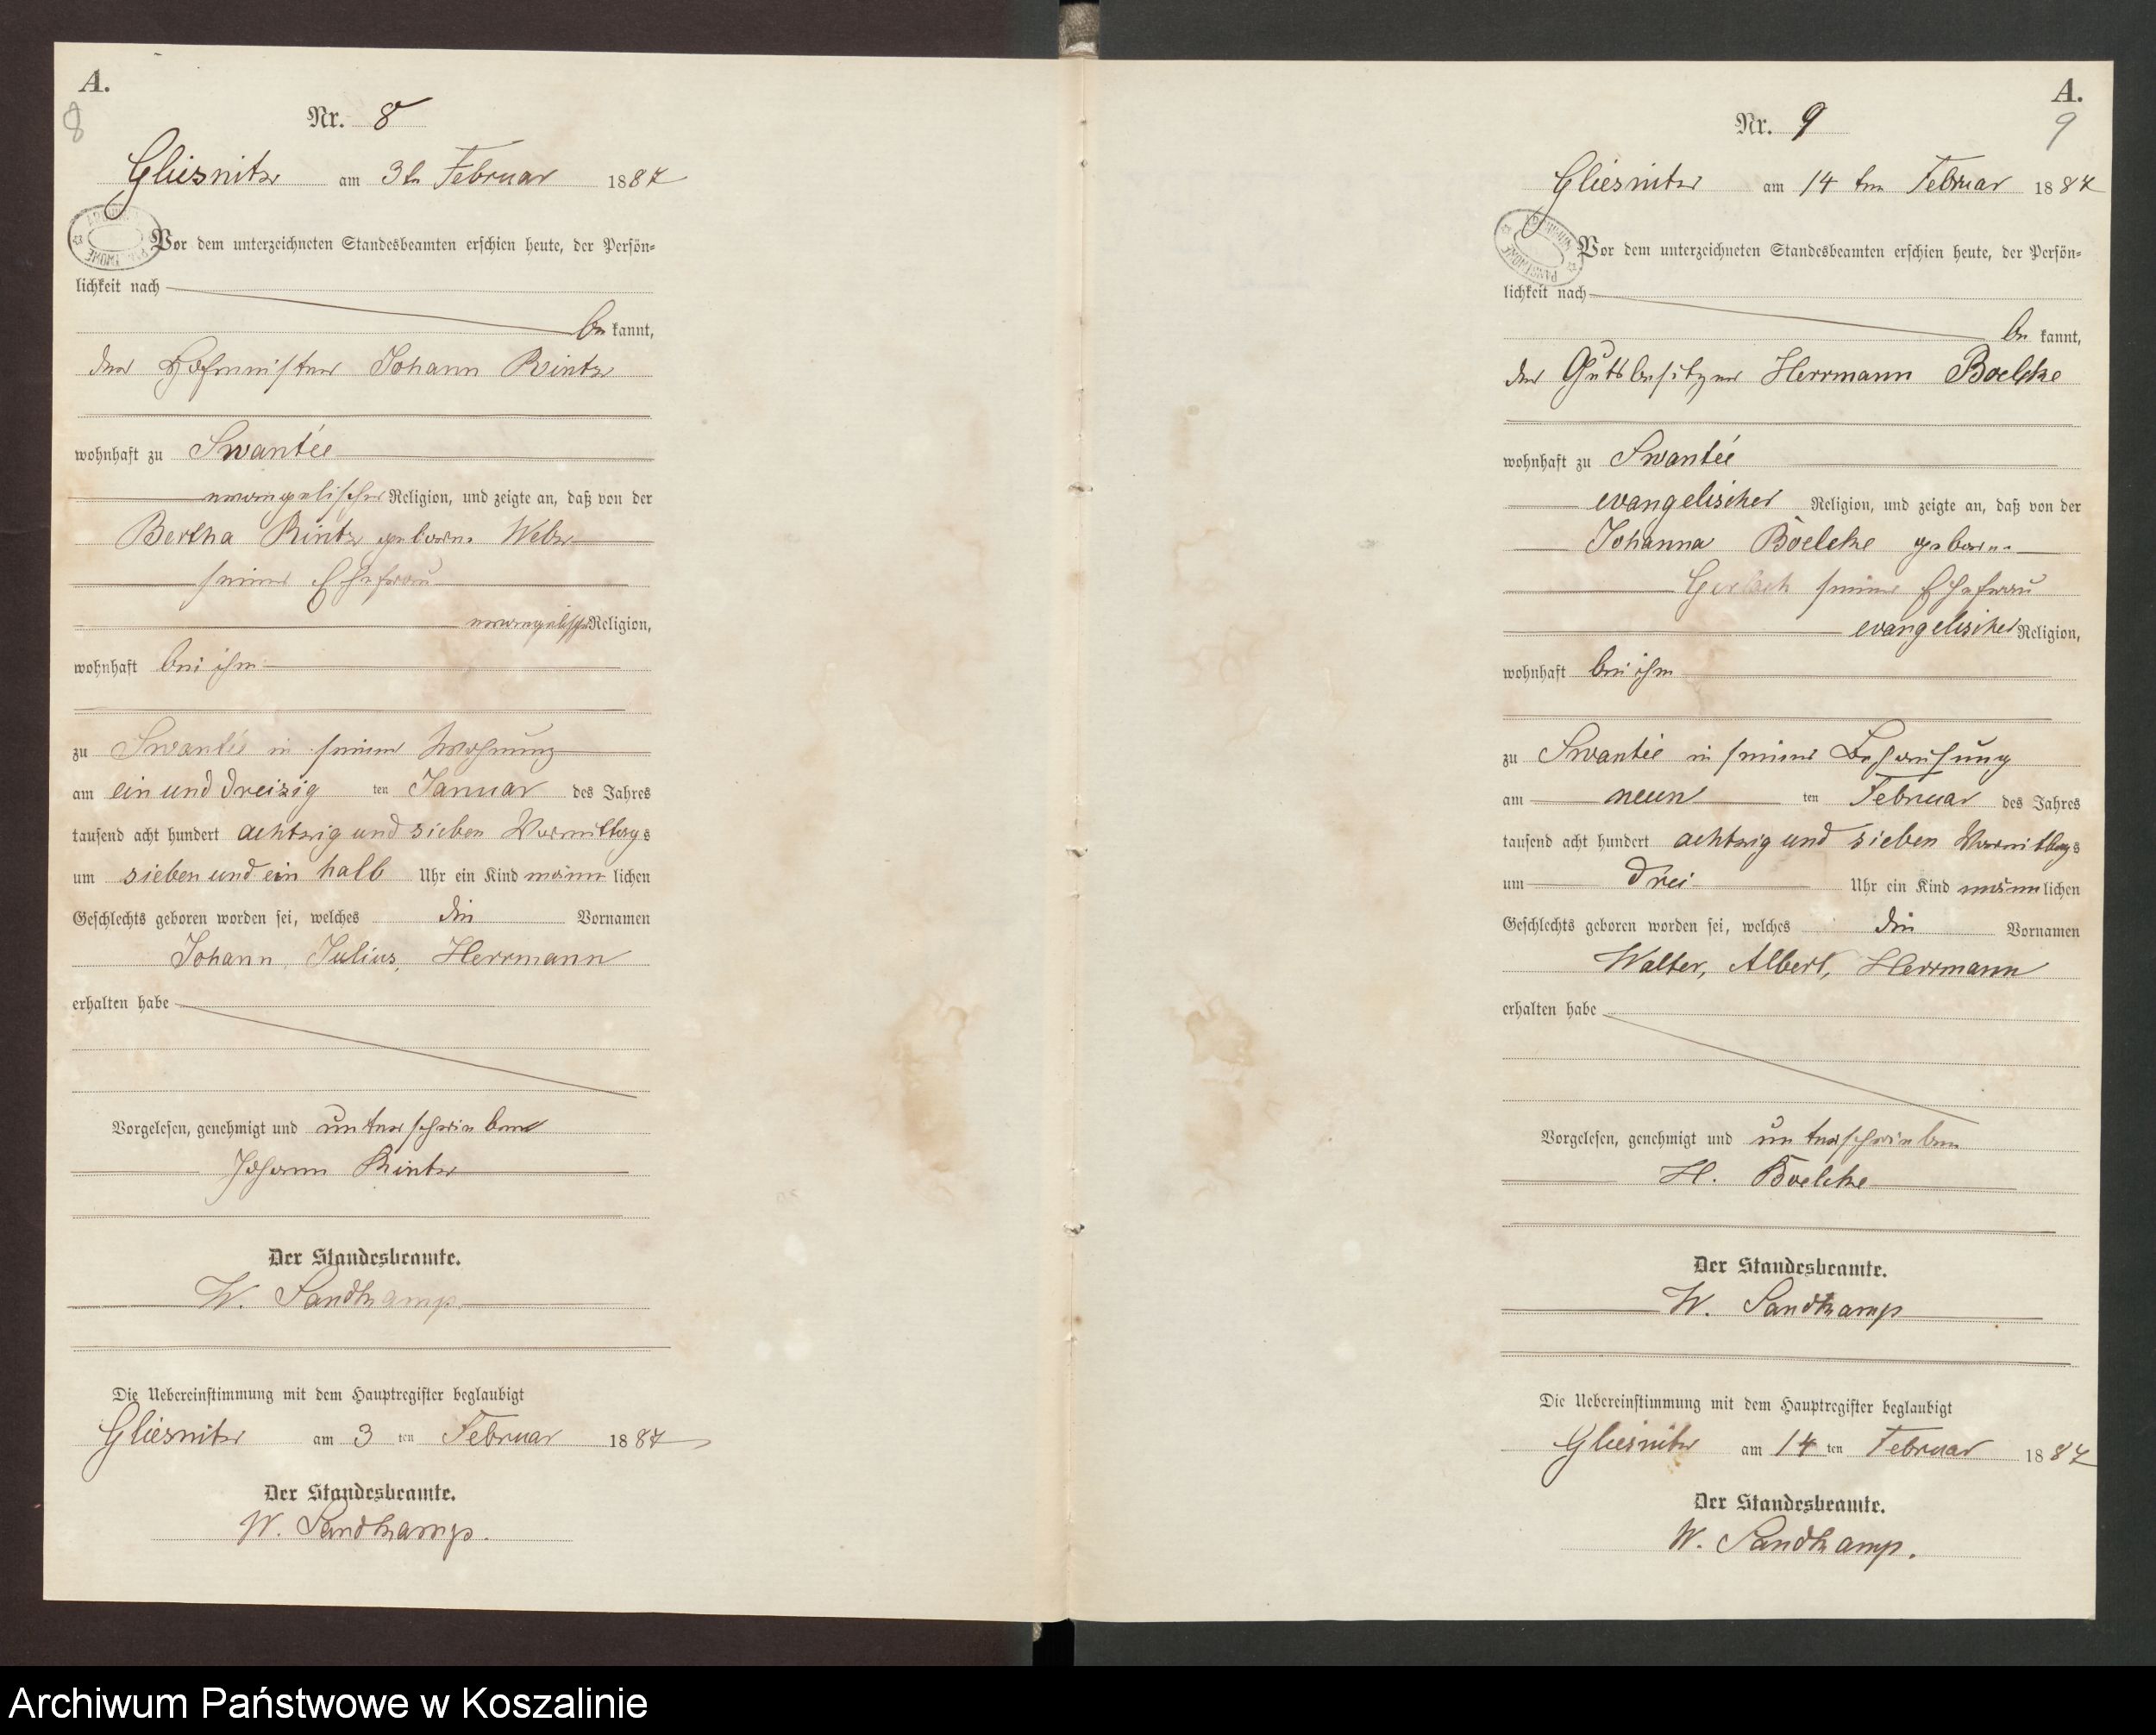 A.
8
Nr. 8
Gliesnitz am 3t Februar 1887
Vor dem unterzeichneten Standesbeamten erschien heute, der Persön=
lichkeit nach
be kannt,
der Hofmeister Johann Rintz
wohnhaft zu Swantée
evangelischer Religion, und zeigte an, daß von der
Bertha Rintz geborne
seiner Ehefrau
evangelischer Religion,
wohnhaft bei ihm
zu Swantée in seiner Wohnung
am ein und dreizig ten Januar des Jahres
tausend acht hundert achtzig und sieben Vormittags
um sieben und ein halb Uhr ein Kind männ lichen
Geschlechts geboren worden sei, welches die Vornamen
Johann, Julius, Herrmann
erhalten habe
Vorgelesen, genehmigt und unterschrieben
Johann Rintz
Der Standesbeamte.
W. Sandkamp
Die Uebereinstimmung mit dem Hauptregister beglaubigt
Gliesnitz am 3 ten Februar 1887
Der Standesbeamte.
W. Sandkamp.
A.
9
Nr. 9
Gliesnitz am 14 ten Februar 1887
Vor dem unterzeichneten Standesbeamten erschien heute, der Persön=
lichkeit nach
be kannt,
der Gutsbesitzer Herrmann Boelcke
wohnhaft zu Swantée
evangelischer Religion, und zeigte an, daß von der
Johanna Boelcke geborne
Gerlach seiner Ehefrau
evangelischer Religion,
wohnhaft bei ihm
zu Swantée in seiner Behausung
am neun ten Februar des Jahres
tausend acht hundert achtzig und sieben Vormittags
um drei Uhr ein Kind männ lichen
Geschlechts geboren worden sei, welches die Vornamen
Walter, Albert, Herrmann
erhalten habe
Vorgelesen, genehmigt und unterschrieben
H. Boelcke
Der Standesbeamte.
W. Sandkamp
Die Uebereinstimmung mit dem Hauptregister beglaubigt
Gliesnitz am 14 ten Februar 1887
Der Standesbeamte.
W. Sandkamp.
Archiwum Państwowe w Koszalinie